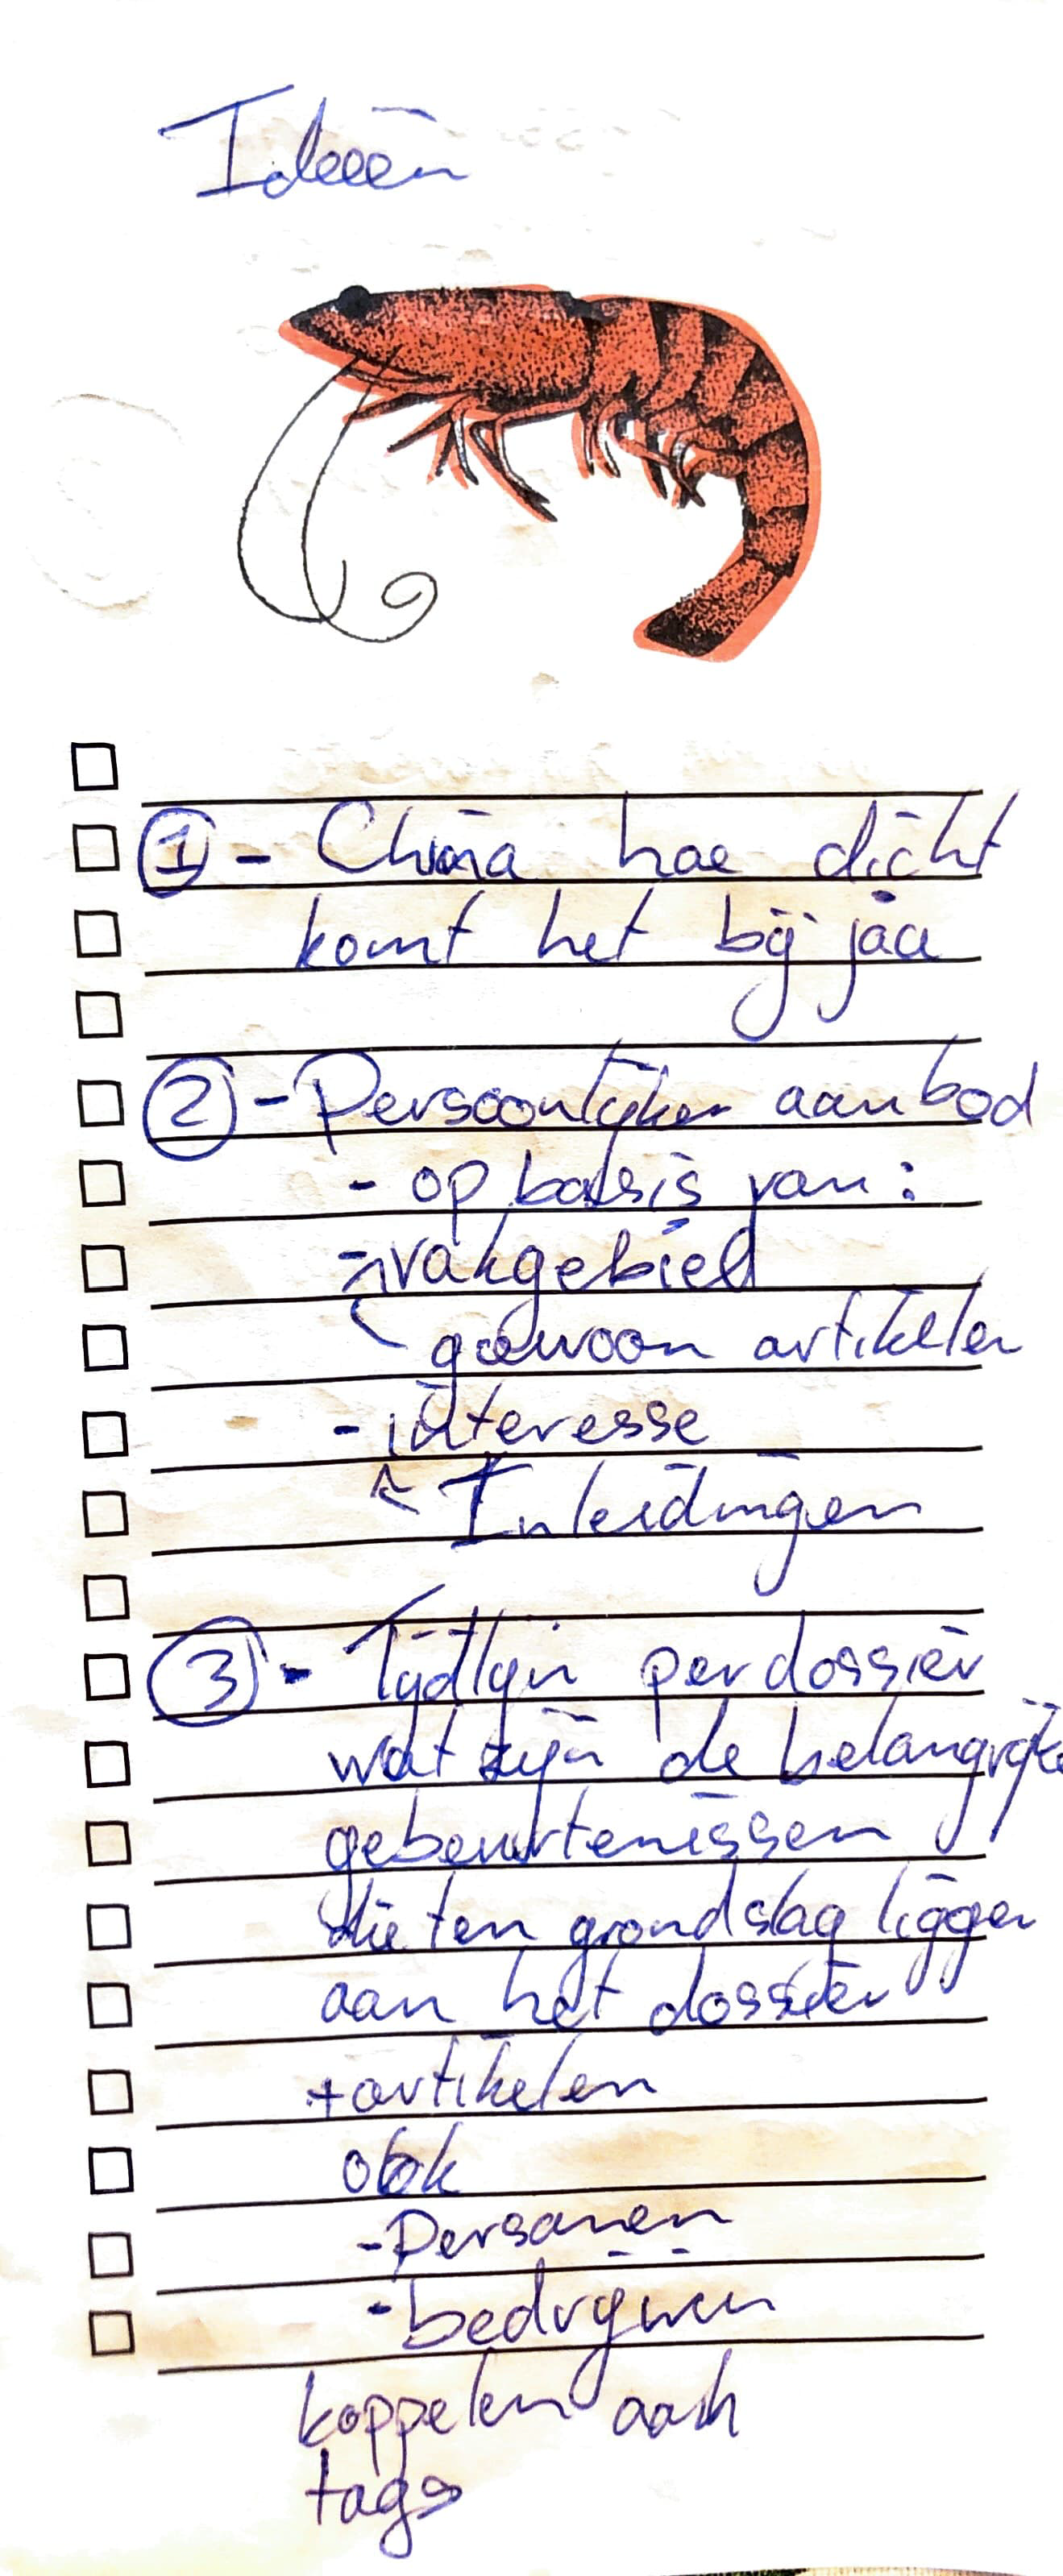 Ideeën
① - China hoe dicht
komt het bij jou
② - Persoonlijker aanbod
- op basis van:
- vakgebied
gewoon artikelen
- interesse
Inleidingen
③ - Tijdlijn per dossier
wat zijn de belangrijke
gebeurtenissen
die ten grondslag liggen
aan het dossier
+ artikelen
ook
- Personen
- bedrijven
koppelen aan
tags